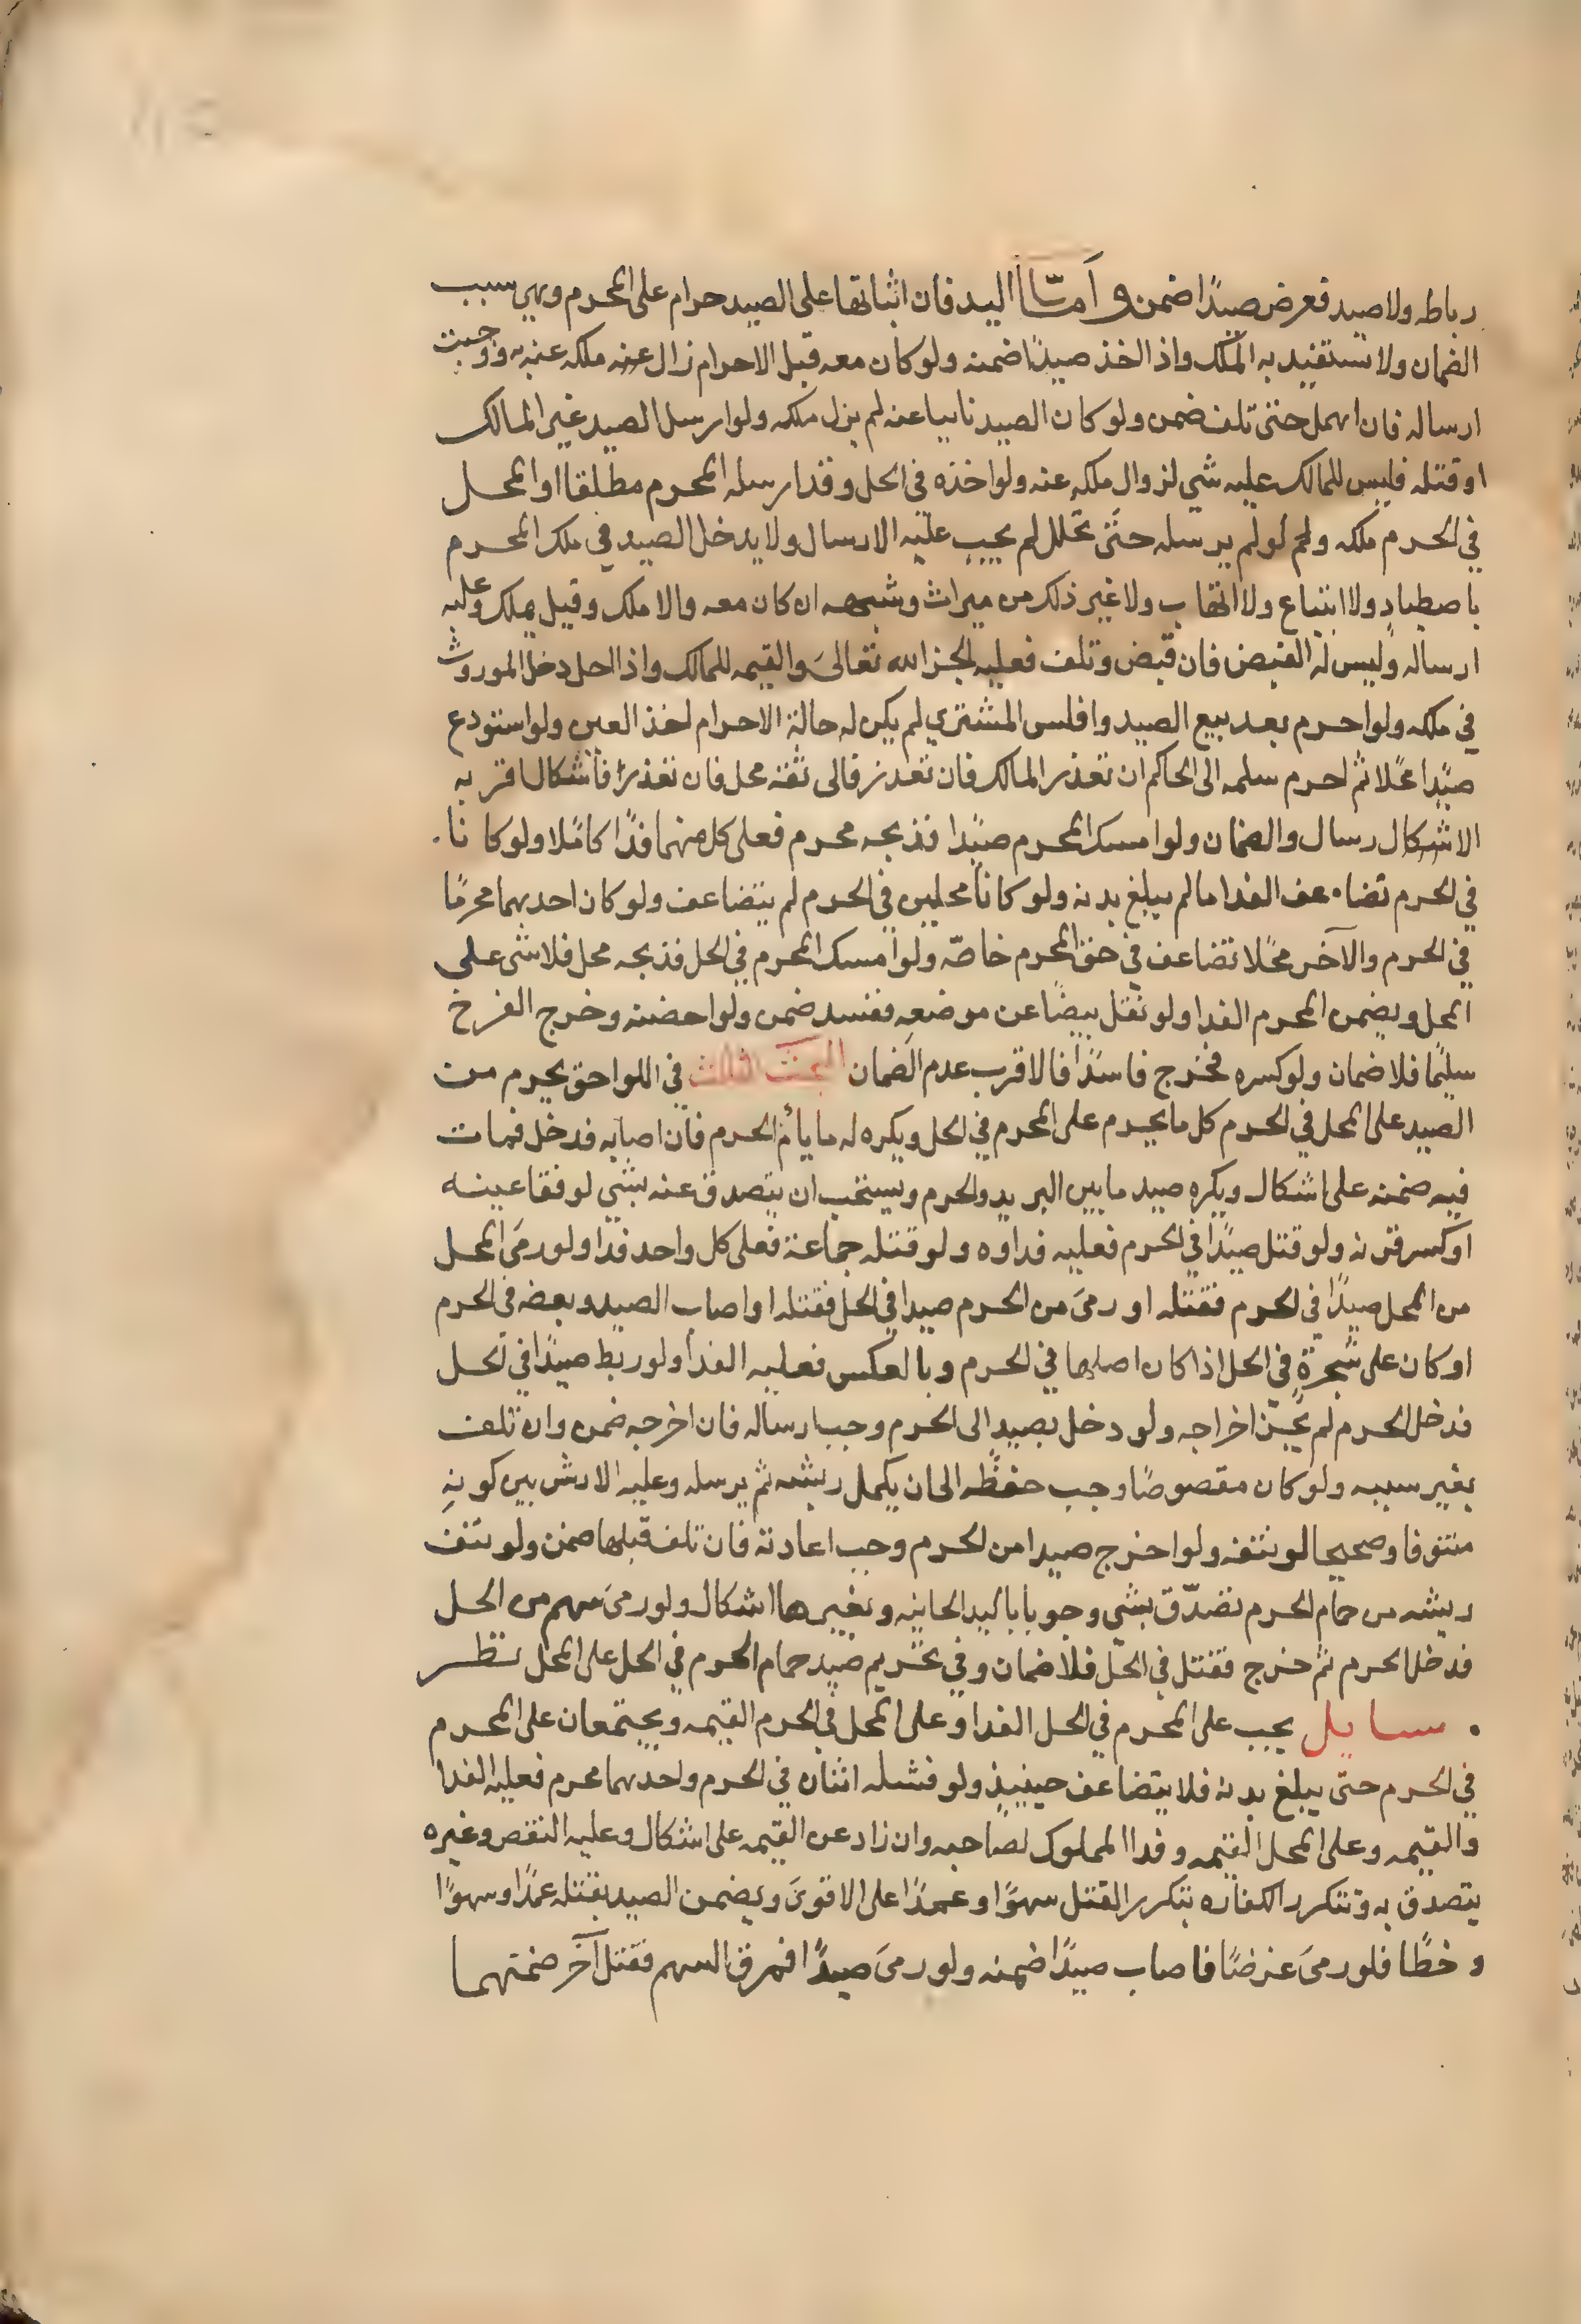 رباطه ولا صيد فعرض صيدًا ضمن وأمّا اليد فان اثباتها على الصيد حرام على المحرم وهي سبب
الضمان ولا تستفيد به الملك واذا اخذ صيدًا ضمنه ولو كان معه قبل الاحرام زال عنه ملكه عنه به ووجبت
ارساله فان اهمل حتى تلف ضمن ولو كان الصيد نايبا عنه لم يزل ملكه ولو ارسل الصيد غير المالك
او قتله فليس للمالك عليه شي لزوال ملكه عنه ولو اخذه في الحل وقد ارسله المحرم مطلقا او المحل
في الحرم ملكه ولم لو لم يرسله حتى تحلل لم يجب عليه الارسال ولا يدخل الصيد في ملك المحرم
باصطياد ولا ابتياع ولا اتهاب ولا غير ذلك من ميراث وشبهه ان كان معه والا ملك وقيل يملك وعليه
ارساله وليس له القبض فان قبض وتلف فعليه الجزا لله تعالى والقيمه للمالك واذا احل دخل الموروث
في ملكه ولو احرم بعد بيع الصيد وافلس المشتري لم يكن له حالة الاحرام اخذ العين ولو استودع
صيدا محلا ثم احرم سلمه الى الحاكم ان تعذر المالك فان تعذر فالى ثقة محل فان تعذر فاشكال اقربه
الاشكال رسال والضمان ولو امسك المحرم صيدا فذبحه محرم فعلى كل منهما فدًا كاملا ولو كا نا
في الحرم تضا عف الفدا ما لم يبلغ بدنه ولو كانا محلين في الحرم لم يتضاعف ولو كان احدهما محرمًا
في الحرم والآخر محلا تضاعف في حق المحرم خاصّه ولو امسك المحرم في الحل فذبحه محل فلا شي على
المحل ويضمن المحرم الفدا ولو نقل بيضًا عن موضعه ففسد ضمن ولو احضنه وخرج الفرخ
سليمًا فلا ضمان ولو كسره فخرج فاسدًا فالاقرب عدم الضمان البحث الثالث في اللواحق يحرم من
الصيد على المحل في الحرم كل ما يحرم على المحرم في الحل ويكره له ما يأم الحرم فان اصابه فدخل فمات
فيه ضمنه على اشكال ويكره صيد ما بين البريد والحرم ويستحب ان يتصدق عنه بشي لو فقا عينه
او كسر قرنه ولو قتل صيدًا في الحرم فعليه فداوه ولو قتله جماعة فعلى كل واحد فدا ولو رمى المحل
من المحل صيدًا في الحرم فقتله او رمى من الحرم صيدا في الحل فقتله او اصاب الصيد وبعضه في الحرم
او كان على شجرةٍ في الحل اذا كان اصلها في الحرم وبالعكس فعليه الفدا ولو ربط صيدًا في الحل
فدخل الحرم لم يجز اخراجه ولو دخل بصيد الى الحرم وجب ارساله فان اخرجه ضمن وان تلف
بغير سببه ولو كان مقصوصًا وجب حفظه الى ان يكمل ريشه ثم يرسله وعليه الارش بين كونه
منتوفا وصحيحا لو نتفه ولو اخرج صيدا من الحرم وجب اعادته فان تلف قبلها ضمن ولو نتف
ريشه من حمام الحرم تصدّق بشي وجوبا باليد الجانيه وبغيرها اشكال ولو رمى بسهم من الحل
فدخل الحرم ثم خرج فقتل في الحلّ فلا ضمان وفي تحريم صيد حمام الحرم في الحل على المحل نظر
مسايل يجب على المحرم في الحل الفدا وعلى المحل في الحرم القيمه ويجتمعان على المحرم
في الحرم حتى يبلغ بدنه فلا يتضاعف حينيذٍ ولو قتله اثنان في الحرم واحدهما محرم فعليه الفدا
والقيمه وعلى المحل القيمه وفدا المملوك لصاحبه وان زاد عن القيمه على اشكال وعليه النقص وغيره
يتصدق به وتتكرر الكفاره بتكرر القتل سهوًا وعمدًا على الاقوى ويضمن الصيد بقتله عمدًا وسهوًا
وخطًا فلو رمى غرضًا فاصاب صيدًا ضمنه ولو رمى صيدًا فمرق السهم فقتل آخر ضمنهما